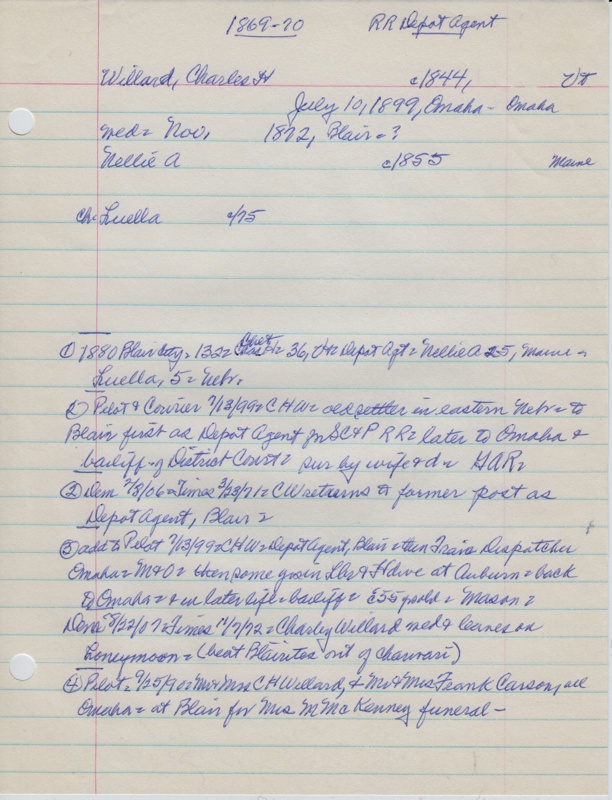 1869-70 RR Depot Agent
Willard, Charles H c1844, Vt
July 10, 1899, Omaha - Omaha
med= Nov, 1872, Blair = ?
Nellie A c1855 Maine
Ch: Luella c/75
① 1880 Blair City = 132 = Chas H = 36, Vt = Depot Agt = Nellie A 25, Maine =
Luella, 5 = Nebr =
② Pilot & Courier 7/13/99 = C H W = old settler in eastern Nebr = to
Blair first as Depot Agent for SC&P RR = later to Omaha &
bailiff of District Court = sur by wife & d = GAR =
② Dem 2/8/06 = Times 3/23/71 = CW returns to former post as
Depot Agent, Blair =
③ add to Pilot 7/13/99 = C H W = Depot Agent, Blair = then Train Dispatcher
Omaha = M&O = then some grain Lbr & Hdwe at Auburn = back
to Omaha = & in later life = bailiff = = Mason =
Dem 8/22/07 = Times 11/7/72 = Charley Willard med & leaves on
honeymoon = (beat Blairites out of charivari)
④ Pilot = 9/25/90 = Mr & Mrs C H Willard, & Mr & Mrs Frank Carson, all
Omaha = at Blair for Mrs M McKenney funeral -